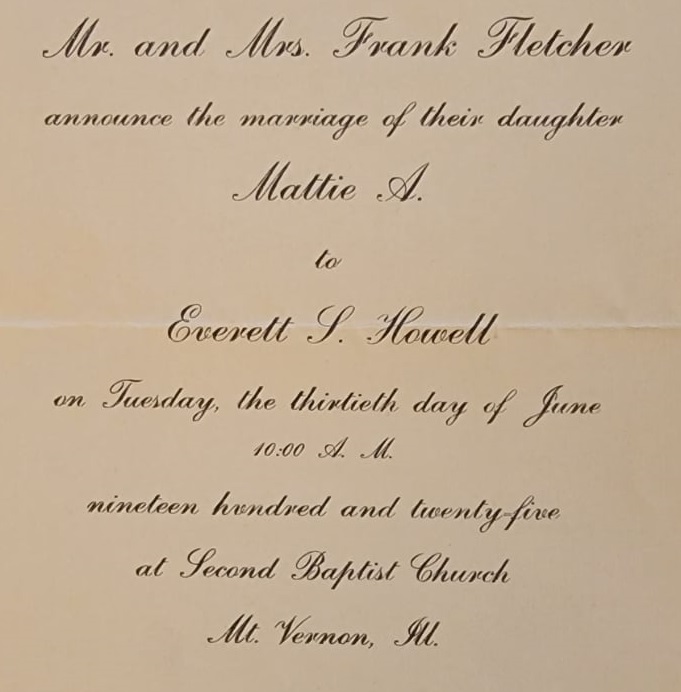 Mr. and Mrs. Frank Fletcher
announce the marriage of their daughter
Mattie A.
to
Everett S. Howell
on Tuesday, the thirtieth day of June
10:00 A. M.
nineteen hundred and twenty-five
at Second Baptist Church
Mt. Vernon, Ill.